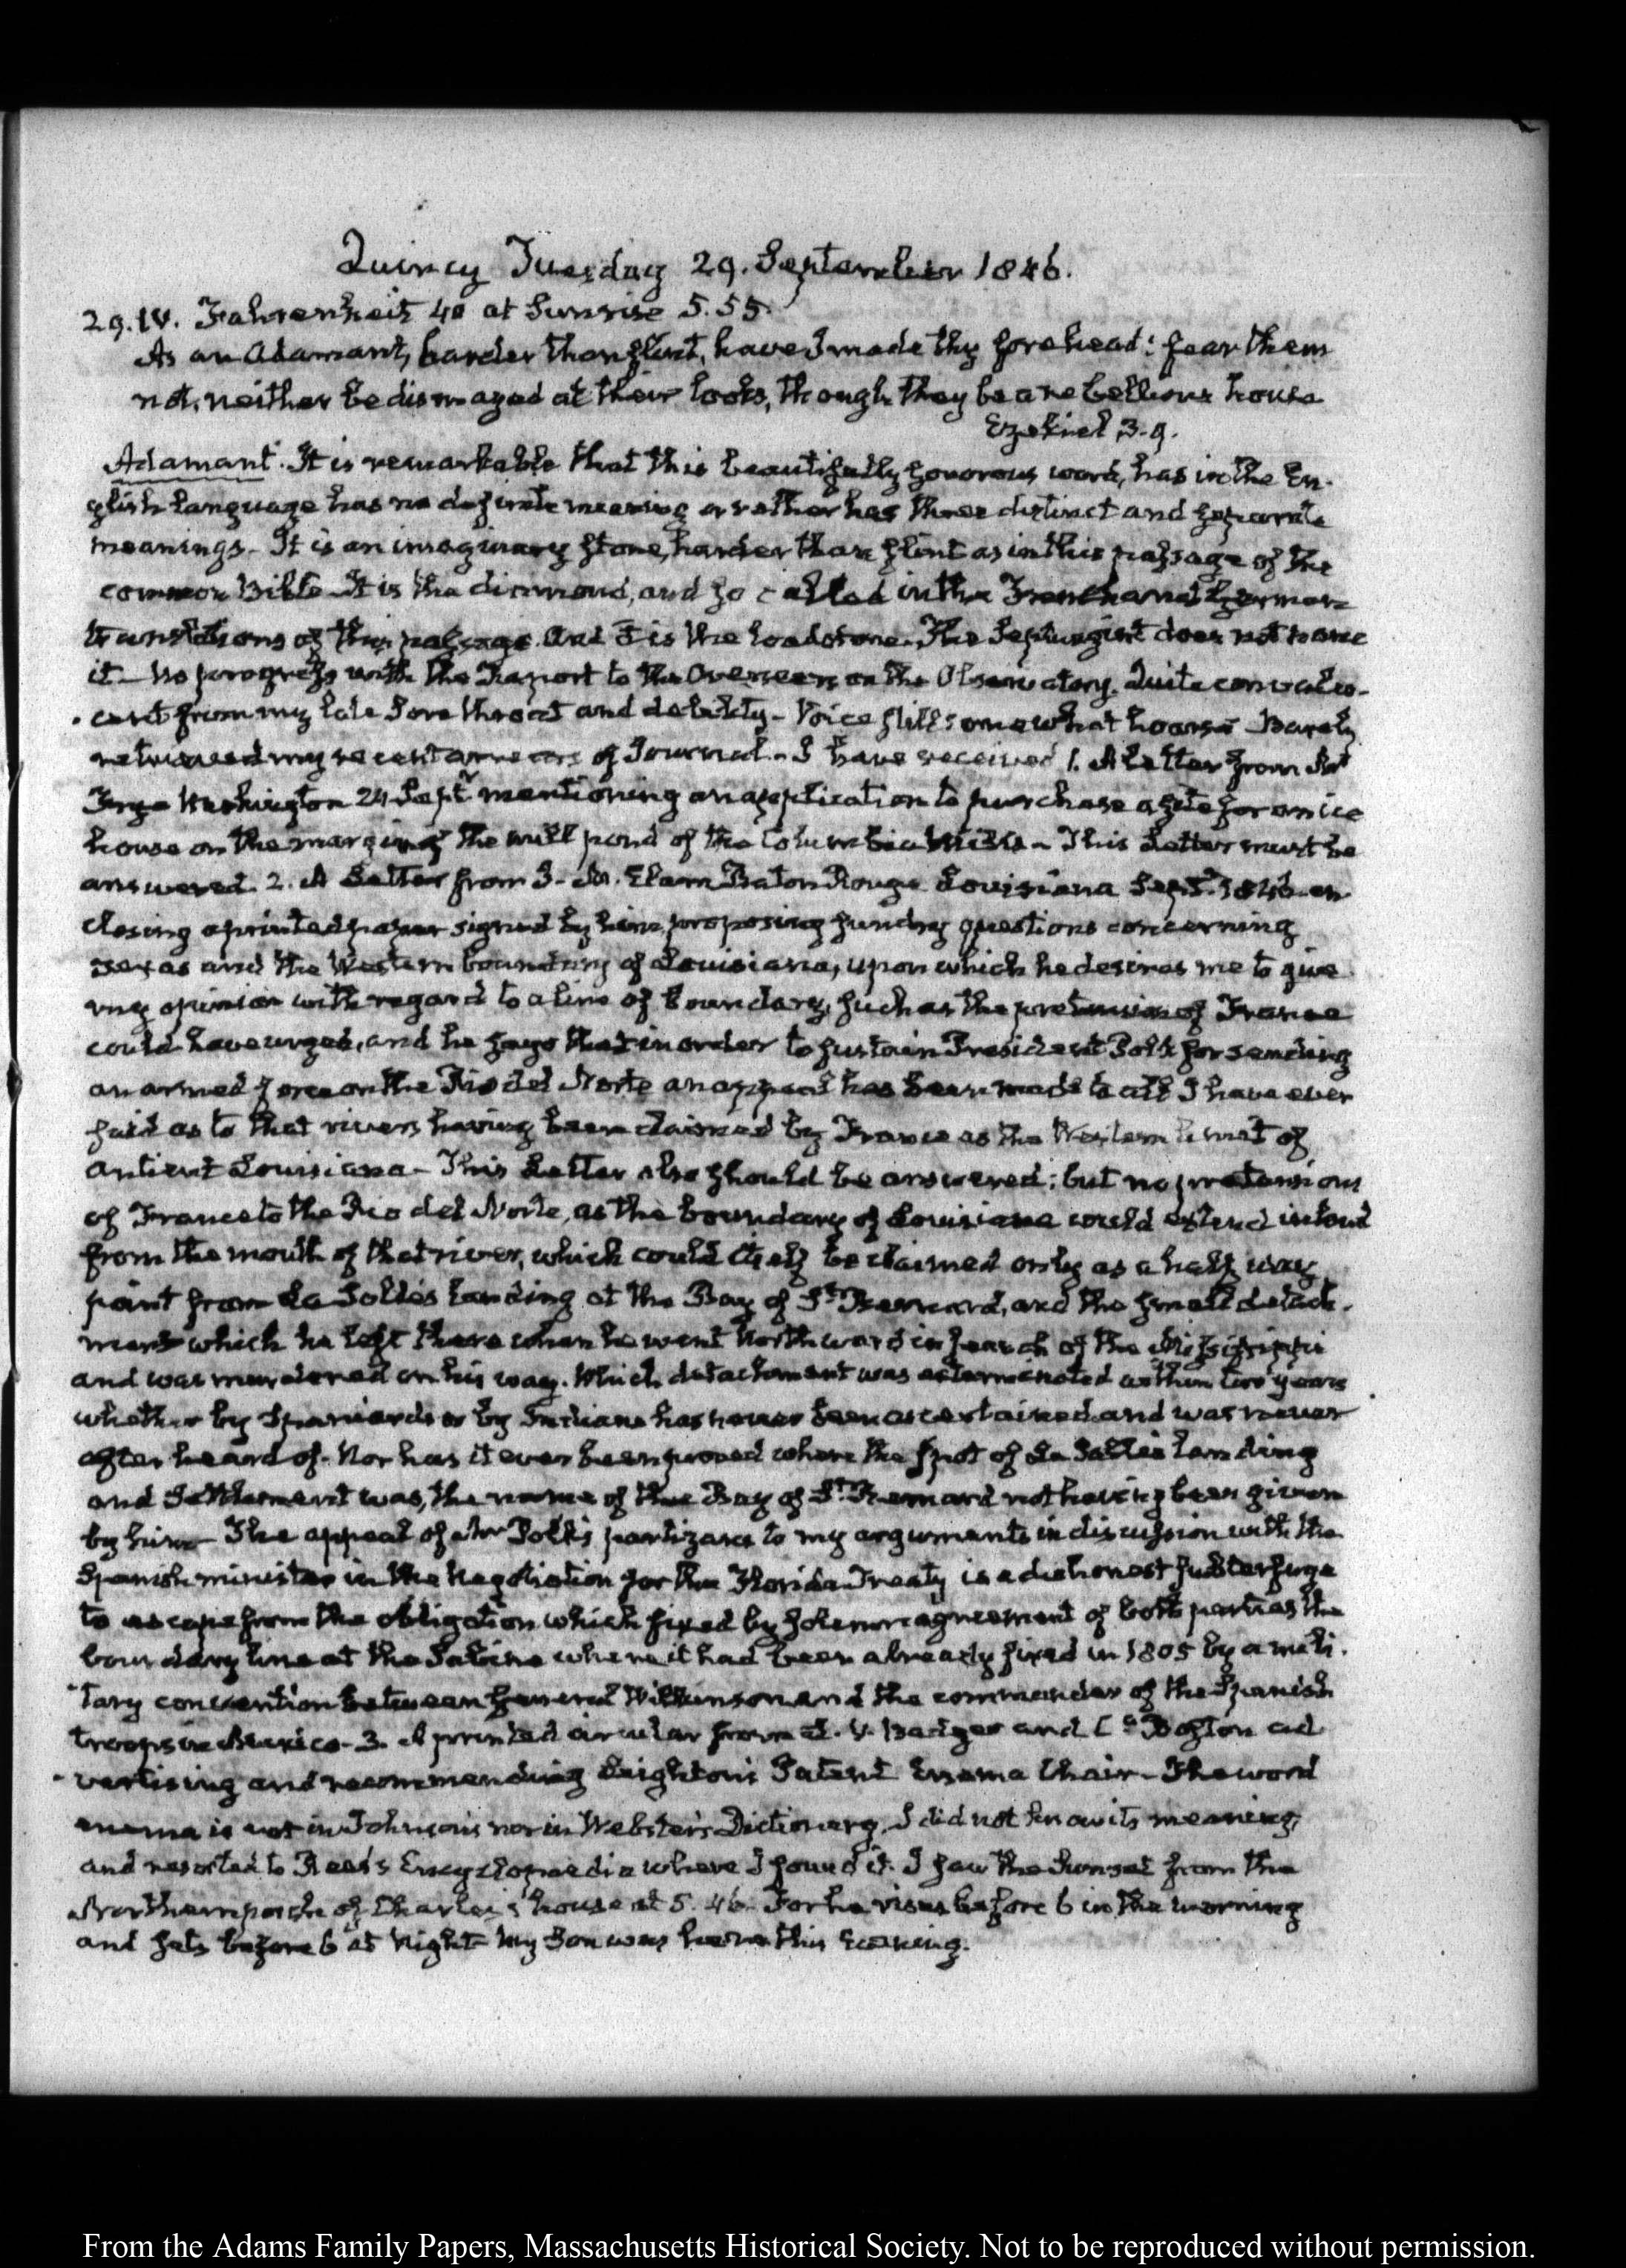 Quincy Tuesday 29. September 1846.
29. IV. Fahrenheit 40 at Sunrise 5.55.
As an Adamant, harder than flint, have I made thy forehead: fear them
not, neither be dismayed at their looks, though they be a rebellious house
Ezekiel 3.9.
Adamant. It is remarkable that this beautifully sonorous word, has in the En-
glish language has no definite meaning or rather has three distinct and separate
meanings. It is an imaginary stone, harder than flint as in this passage of the
common Bible It is the diamond, and so called in the French and German
translations of this passage. And it is the loadstone. The Septuagint does not name
it— No progress with the Report to the Overseers on the Observatory. Quite convales-
cent from my late sore throat and debility— Voice still somewhat hoarse Barely
retrieved my recent arrears of Journal.— I have received 1. A Letter from
Washington 24 Septr. mentioning an application to purchase a site for an ice
house on the margin of the mill pond of the Columbia Mills— This Letter must be
answered. 2. A Letter from J. M. Elam Baton Rouge Louisiana Septr. 1846 en
closing a printed paper signed by him proposing sundry questions concerning
Texas and the Western boundary of Louisiana, upon which he desires me to give
my opinion with regard to a line of boundary, such as the pretension of France
could have urged, and he says that in order to sustain President Polk for sending
an armed force on the Rio del Norte an appeal has been made to all I have ever
said as to that rivers having been claimed by France as the Western limit of
antient Louisiana— This Letter also should be answered; but no pretensions
of France to the Rio del Norte, as the boundary of Louisiana could extend inland
from the mouth of that river, which could itself be claimed only as a half way
point from La Salle's landing at the Bay of St. Bernard, and the small detach-
ment which he left there when he went Northward in search of the Mississippi
and was murdered on his way. Which detachment was exterminated within two years
whether by Spaniards or by Indians has never been ascertained and was never
after heard of. Nor has it ever been proved where the spot of La Salle's landing
and Settlement was, the name of the Bay of St. Bernard not having been given
by him— The appeal of Mr Polk's partizans to my arguments in discussion with the
Spanish minister in the Negotiation for the Florida Treaty is a dishonest subterfuge
to escape from the obligation which fixed by solemn agreement of both parties the
boundary line at the Sabine where it had been already fixed in 1805 by a mili-
tary convention between General Wilkinson and the commander of the Spanish
troops in Mexico— 3. A printed circular from V. Badger and Co. Boston ad
vertising and recommending Leighton's Patent Enema Chair— The word
enema is not in Johnson's nor in Webster's Dictionary. I did not know its meaning,
and resorted to Rees's Encyclopaedia where I found it. I saw the Sunset from the
Northern porch of Charles's house at 5.46. For he rises before 6 in the morning
and sets before 6 at Night My Son was here this Evening.
From the Adams Family Papers, Massachusetts Historical Society. Not to be reproduced without permission.